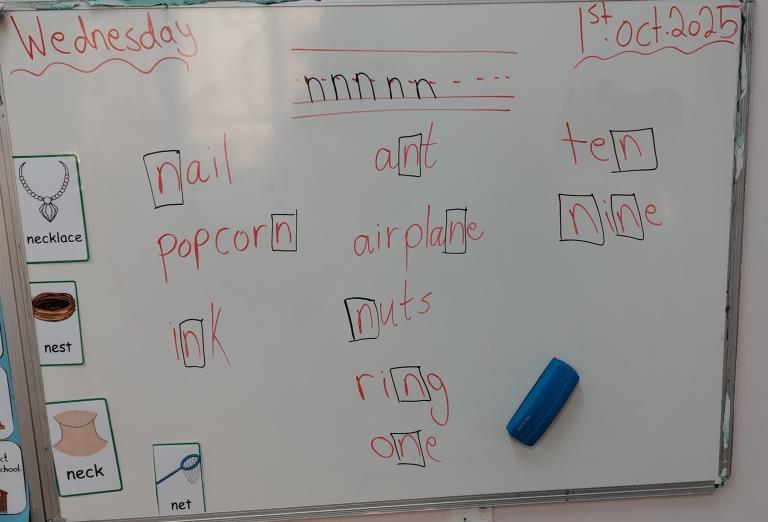 Wednesday
1st. Oct. 2025
nnnnn
nail
ant
ten
popcorn
airplane
nine
ink
nuts
ring
one
necklace
nest
neck
net
ct
chool